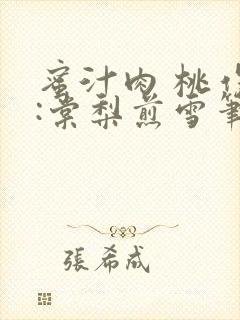 蜜汁肉桃作
:棠梨煎雪筆
張希成